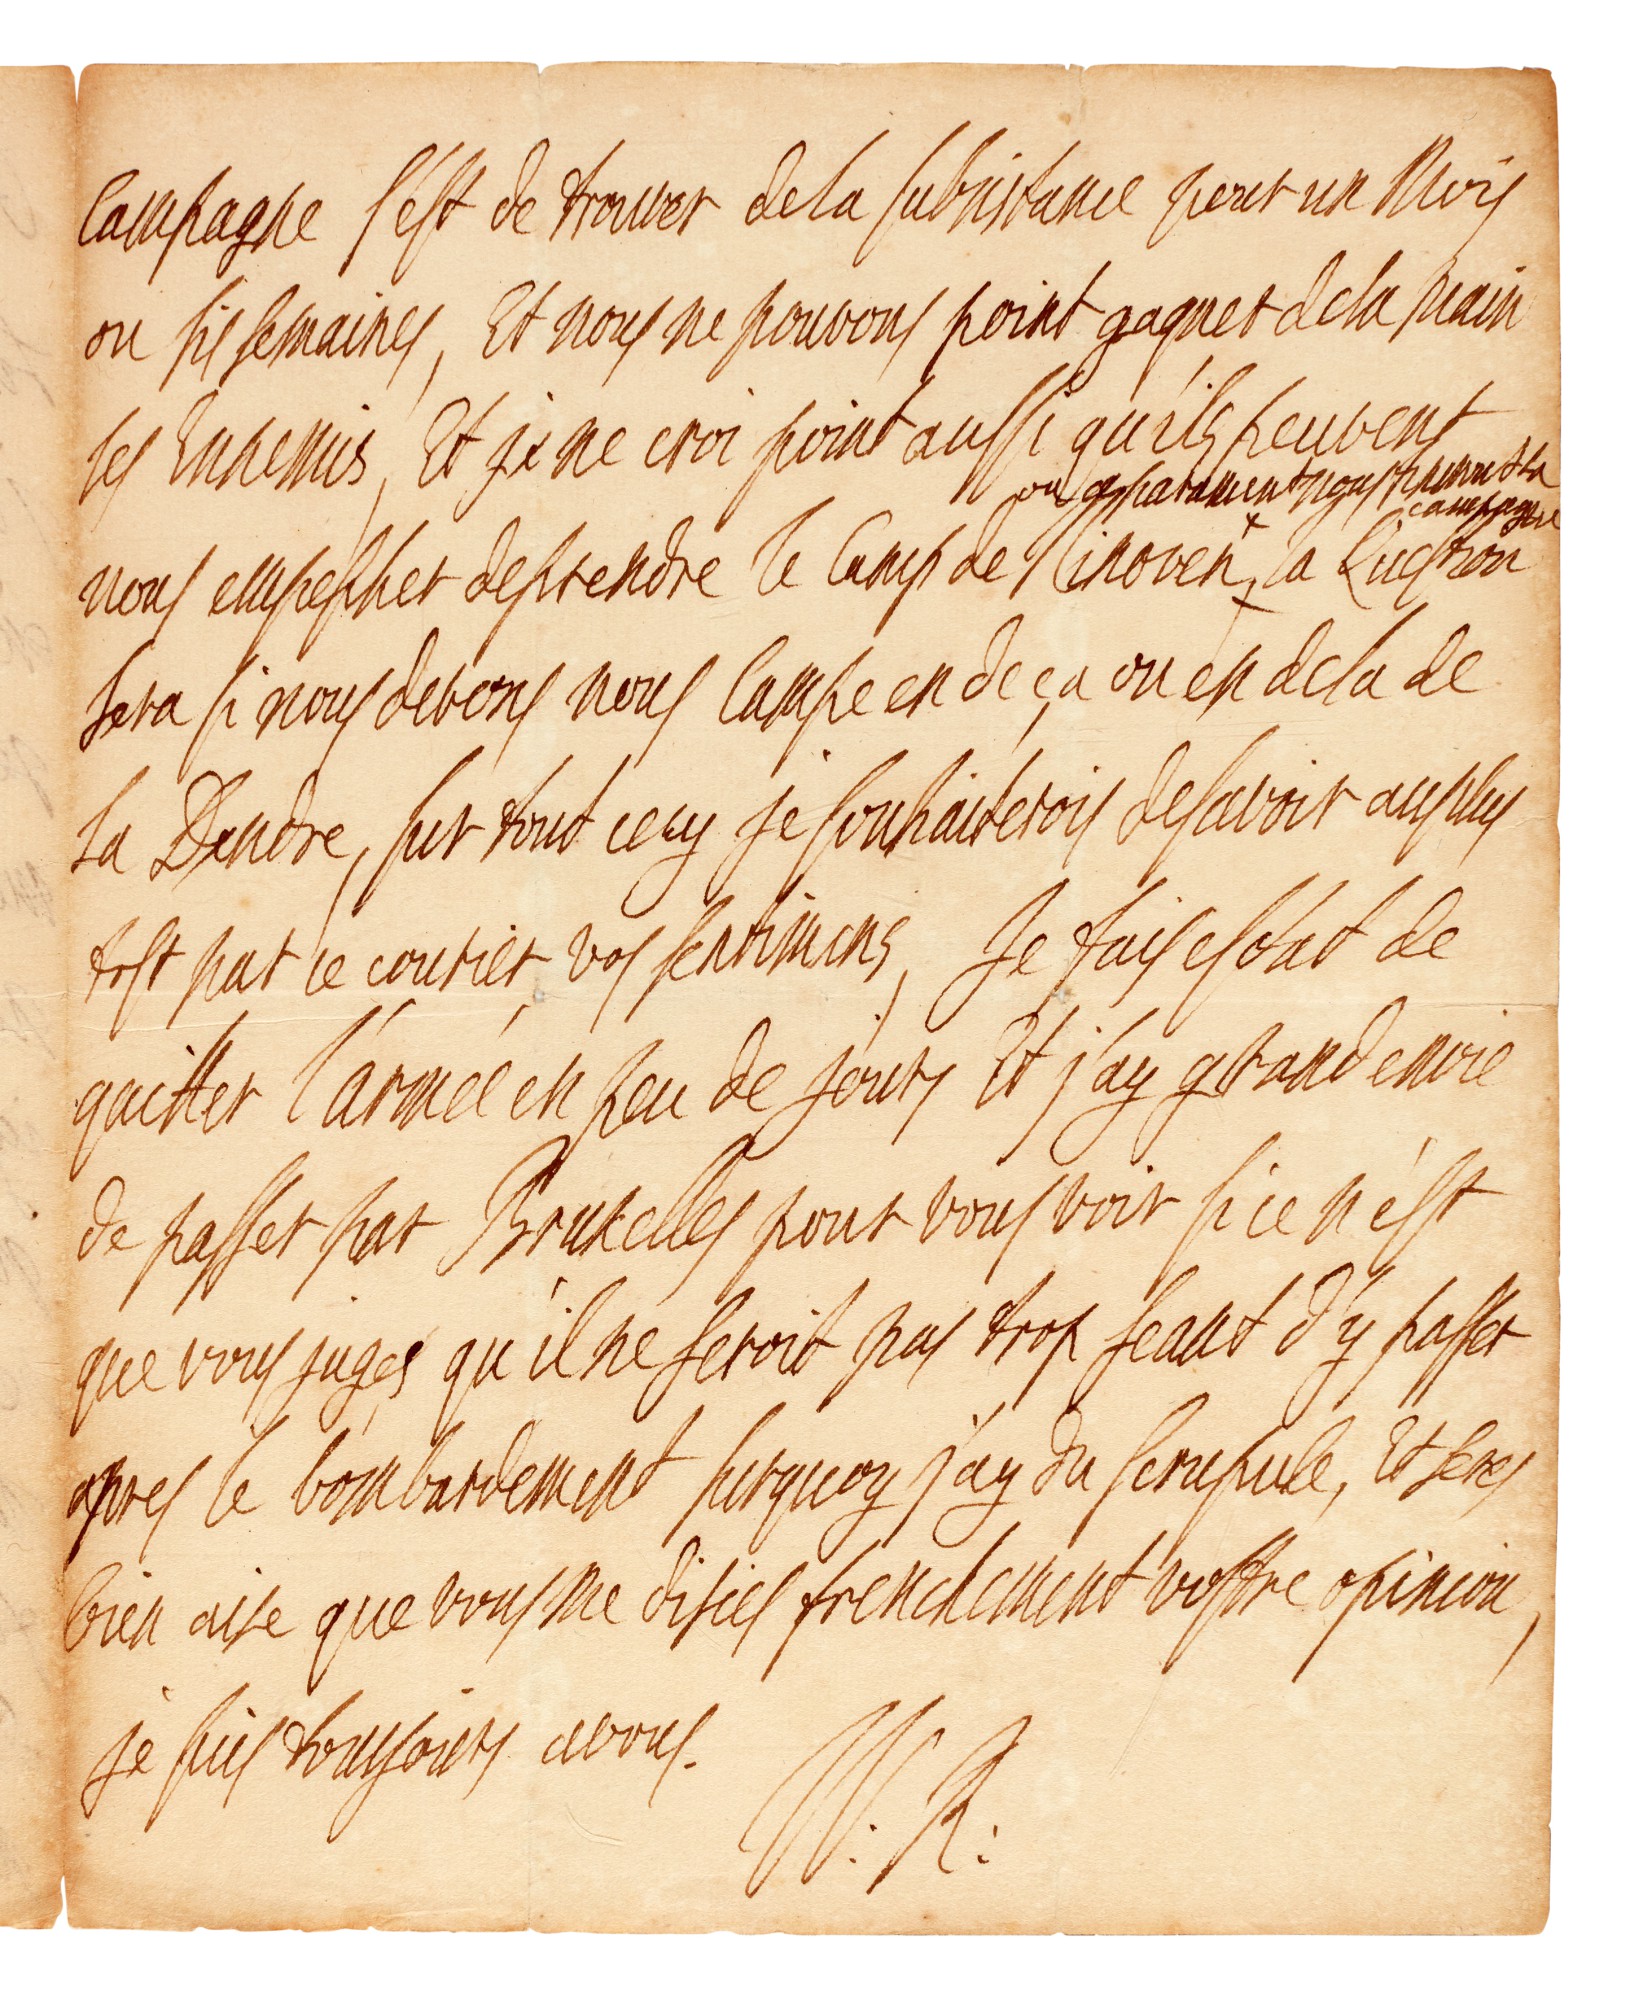 Campagne s'est de trouver de la subsistance pour un Mois
ou six semaines, Et nous ne pouvons point gagner de la main
les Ennemis, Et je ne croi point aussi qu'ils peuvent
ou apparament nous finirons la
campagne
nous empescher de prendre le Camp de Ninoven, la Question
sera si nous devons nous campe en deça ou en dela de
la Dendre, sur tout cecy je souhaiterois de savoir au plus
tost par ce courier vos sentimens, Je fais estat de
quitter l'armée en peu de jours Et j'ay grand envie
de passer par Bruxelles pour vous voir si ce n'est
que vous juges qu'il ne seroit pas trop seant d'y passer
apres le bombardement surquoy j'ay du scrupule, Et seres
bien aise que vous me disies franchement vostre opinion,
je suis tousjours a vous.
W. R: